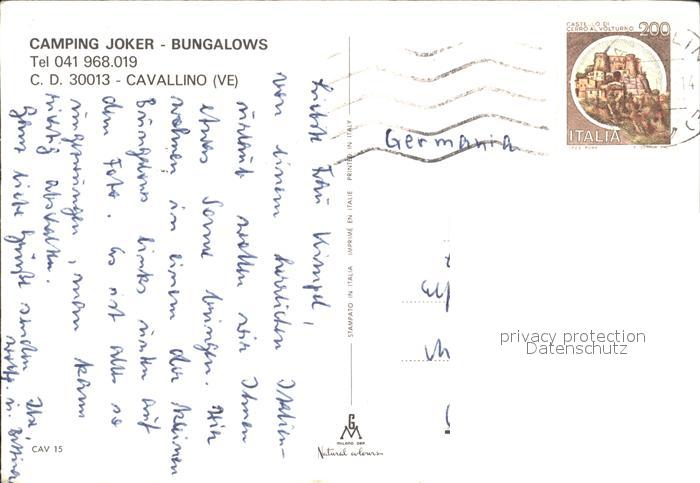 CAMPING JOKER - BUNGALOWS
Tel 041 968.019
C. D. 30013 - CAVALLINO (VE)
CASTELLO DI
CERRO AL VOLTURNO 200
ITALIA
Germania
Liebste Frau Kimpel,
von einem herrlichen Italien-
urlaub wollen wir Ihnen
etwas Sonne bringen. Wir
wohnen in einem der kleinen
Bungalows links unten auf
dem Foto. Es ist alles so
ungezwungen, man kann
richtig abschalten.
Ganz liebe Grüße senden Ihnen
STAMPATO IN ITALIA IMPRIMÉ EN ITALIE PRINTED IN ITALY
privacy protection
Datenschutz
GM
MILANO DEP.
Natural colours
CAV 15